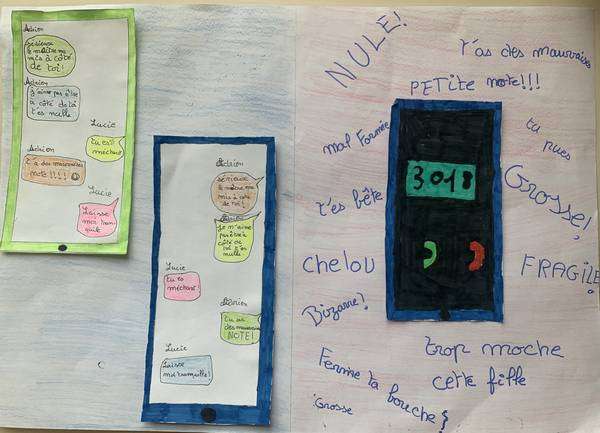 Adrion
Sérieux
le maître ma
mis à côté
de toi!
Adrion
j'aime pas être
à côté de toi
t'es nulle
Lucie
tu est
méchant
Adrion
t'a des mauvaises
note !!!!
Lucie
Laisse
moi tran
quile
Adrion
sérieux
le maître ma
mis à côté
de toi!
Adrion
je n'aime
pas être à
côté de
toi t'es
nulle
Lucie
tu es
méchant!
Adrion
tu as
des mauvaises
NOTE!
Lucie
Laisse
moi tranquille!
NULE!
t'as des mauvaises
PETite note!!!
mal Formée
tu pues
3018
t'es bête
Grosse!
chelou
FRAGILE
Bizarre!
trop moche
cette fille
Ferme ta
bouche
Grosse